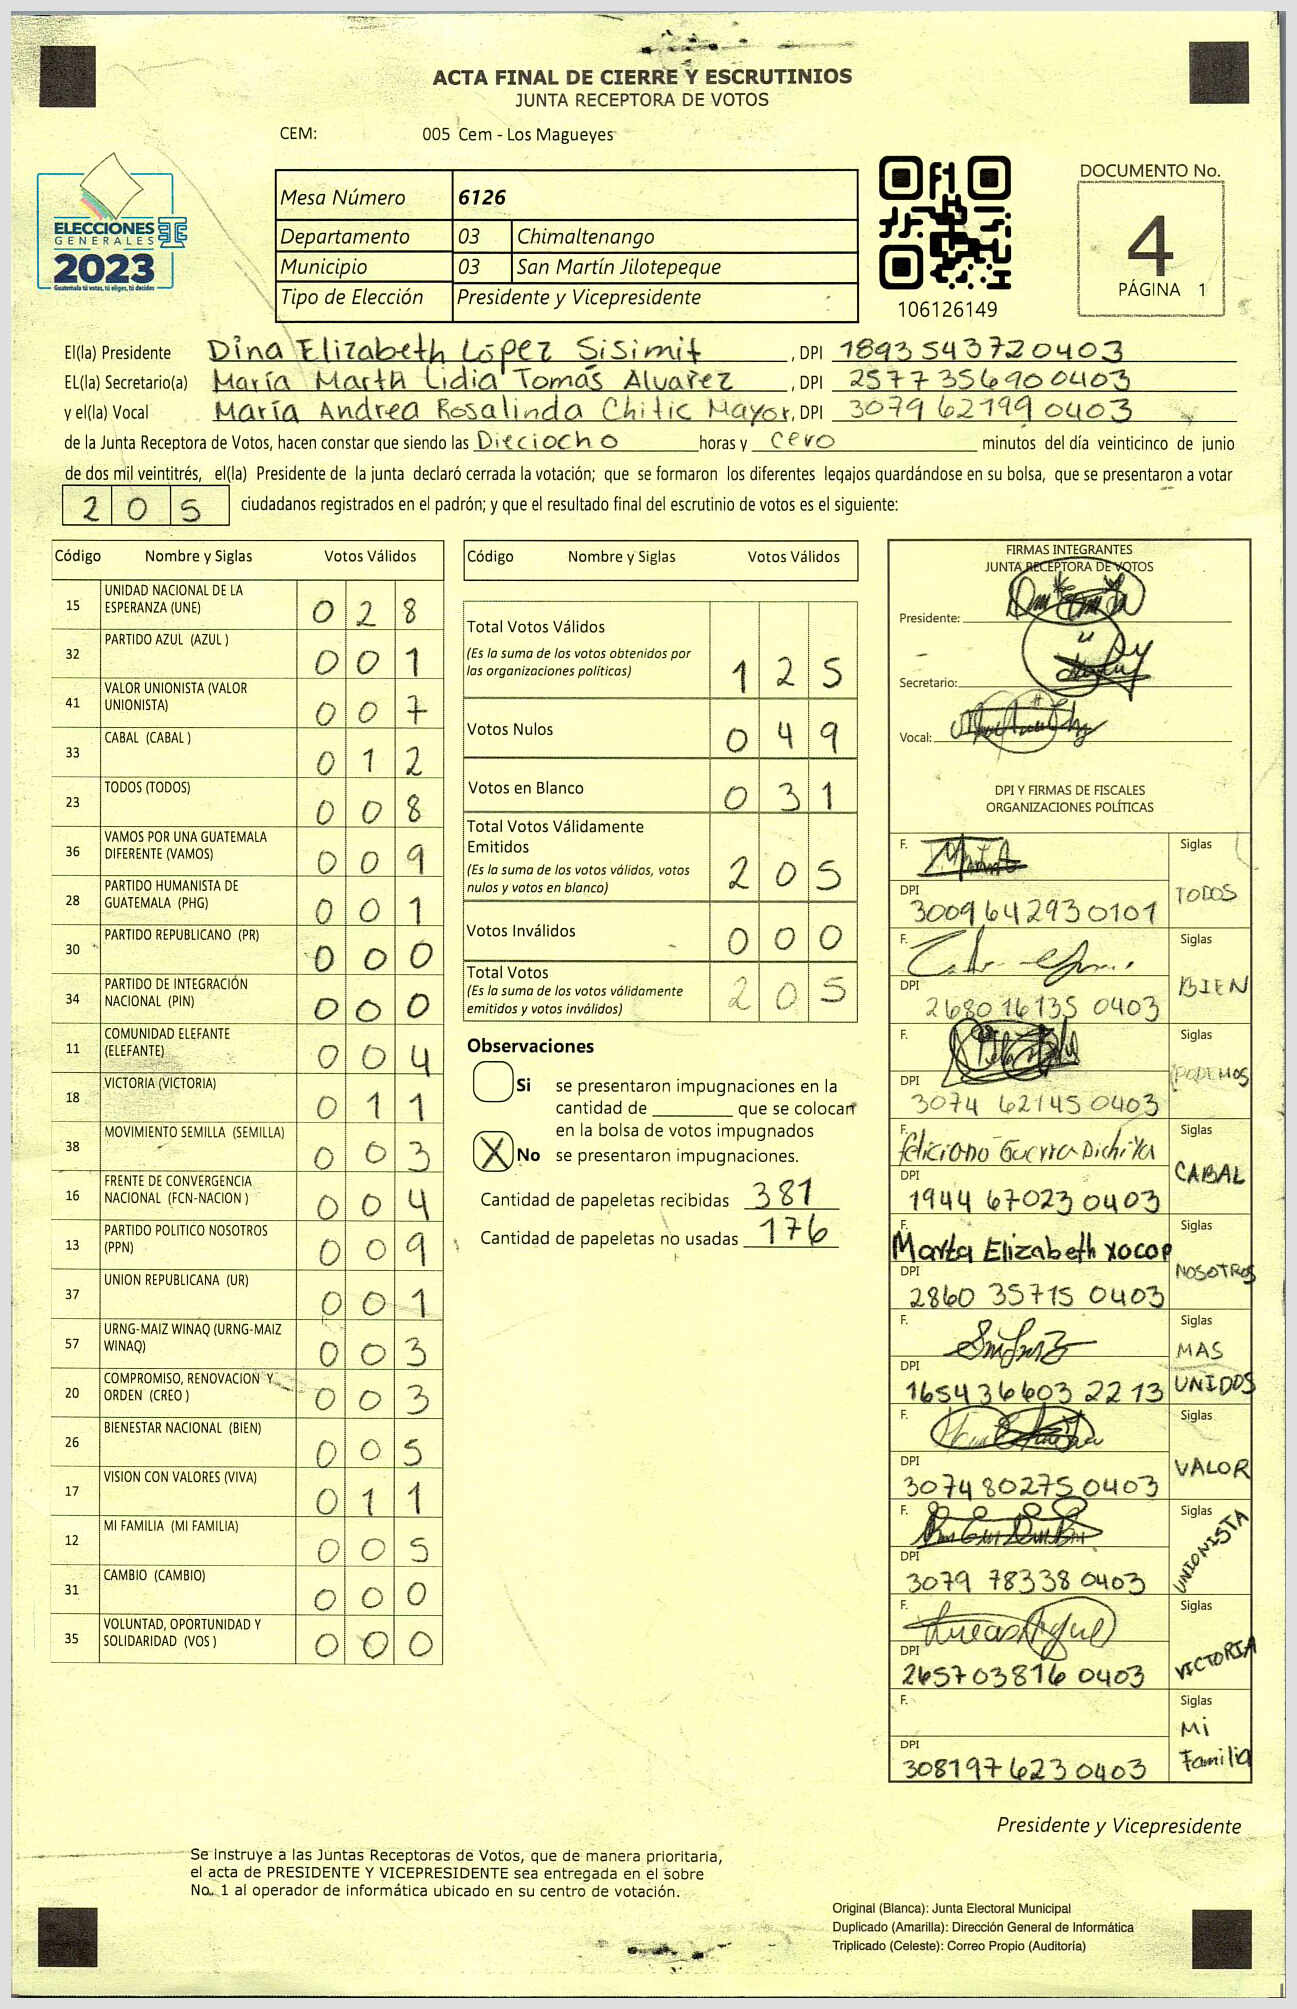 ACTA FINAL DE CIERRE Y ESCRUTINIOS
JUNTA RECEPTORA DE VOTOS
CEM: 005 Cem - Los Magueyes
ELECCIONES
GENERALES
2023
Guatemala tú votas, tú eliges, tú decides
Mesa Número 6126
Departamento 03 Chimaltenango
Municipio 03 San Martín Jilotepeque
Tipo de Elección Presidente y Vicepresidente
106126149
DOCUMENTO No.
4
PÁGINA 1
El(la) Presidente Dina Elizabeth López Sisimit, DPI 1893543720403
EL(la) Secretario(a) María Marta Lidia Tomás Alvarez, DPI 2577356900403
y el(la) Vocal María Andrea Rosalinda Chitic Mayor, DPI 3079621990403
de la Junta Receptora de Votos, hacen constar que siendo las Dieciocho horas y cero minutos del día veinticinco de junio
de dos mil veintitrés, el(la) Presidente de la junta declaró cerrada la votación; que se formaron los diferentes legajos guardándose en su bolsa, que se presentaron a votar
205 ciudadanos registrados en el padrón; y que el resultado final del escrutinio de votos es el siguiente:
Código Nombre y Siglas Votos Válidos
15 UNIDAD NACIONAL DE LA ESPERANZA (UNE) 028
32 PARTIDO AZUL (AZUL ) 001
41 VALOR UNIONISTA (VALOR UNIONISTA) 007
33 CABAL (CABAL ) 012
23 TODOS (TODOS) 008
36 VAMOS POR UNA GUATEMALA DIFERENTE (VAMOS) 009
28 PARTIDO HUMANISTA DE GUATEMALA (PHG) 001
30 PARTIDO REPUBLICANO (PR) 000
34 PARTIDO DE INTEGRACIÓN NACIONAL (PIN) 000
11 COMUNIDAD ELEFANTE (ELEFANTE) 004
18 VICTORIA (VICTORIA) 011
38 MOVIMIENTO SEMILLA (SEMILLA) 003
16 FRENTE DE CONVERGENCIA NACIONAL (FCN-NACION ) 004
13 PARTIDO POLITICO NOSOTROS (PPN) 009
37 UNION REPUBLICANA (UR) 001
57 URNG-MAIZ WINAQ (URNG-MAIZ WINAQ) 003
20 COMPROMISO, RENOVACION Y ORDEN (CREO ) 003
26 BIENESTAR NACIONAL (BIEN) 005
17 VISION CON VALORES (VIVA) 011
12 MI FAMILIA (MI FAMILIA) 005
31 CAMBIO (CAMBIO) 000
35 VOLUNTAD, OPORTUNIDAD Y SOLIDARIDAD (VOS ) 000
Código Nombre y Siglas Votos Válidos
Total Votos Válidos
(Es la suma de los votos obtenidos por
las organizaciones políticas) 125
Votos Nulos 049
Votos en Blanco 031
Total Votos Válidamente
Emitidos
(Es la suma de los votos válidos, votos
nulos y votos en blanco) 205
Votos Inválidos 000
Total Votos
(Es la suma de los votos válidamente
emitidos y votos inválidos) 205
Observaciones
Si se presentaron impugnaciones en la
cantidad de ________ que se colocan
en la bolsa de votos impugnados
X No se presentaron impugnaciones.
Cantidad de papeletas recibidas 381
Cantidad de papeletas no usadas 176
FIRMAS INTEGRANTES
JUNTA RECEPTORA DE VOTOS
Presidente:
Secretario:
Vocal:
DPI Y FIRMAS DE FISCALES
ORGANIZACIONES POLÍTICAS
F. Siglas
DPI 3009642930101 TODOS
F. Siglas
DPI 2680161350403 BIEN
F. Siglas
DPI 3074621450403 PODEMOS
F. Feliciano Guerra Siglas
DPI 1944670230403 CABAL
F. Marta Elizabeth xocop Siglas
DPI 2860357150403 NOSOTROS
F. Siglas
MAS
DPI 1654366032213 UNIDOS
F. Siglas
DPI 3074802750403 VALOR
F. Siglas
DPI 3079783380403 UNIONISTA
F. Siglas
DPI 2657038160403 VICTORIA
F. Siglas
Mi
DPI 3081976230403 Familia
Presidente y Vicepresidente
Se instruye a las Juntas Receptoras de Votos, que de manera prioritaria,
el acta de PRESIDENTE Y VICEPRESIDENTE sea entregada en el sobre
No. 1 al operador de informática ubicado en su centro de votación.
Original (Blanca): Junta Electoral Municipal
Duplicado (Amarilla): Dirección General de Informática
Triplicado (Celeste): Correo Propio (Auditoría)